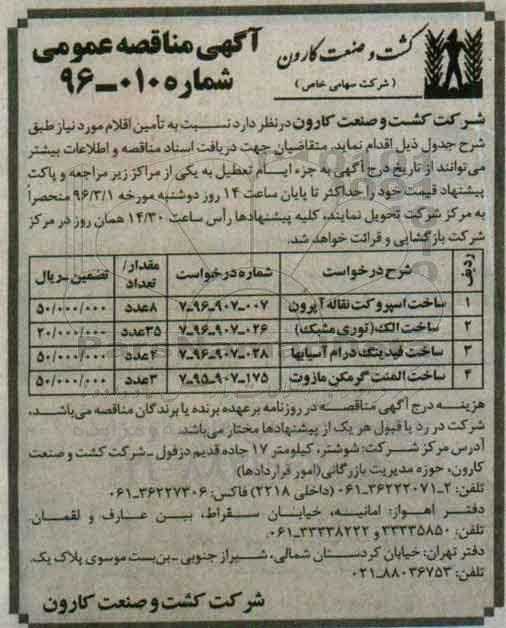 کشت و صنعت کارون
( شرکت سهامی خاص )
آگهی مناقصه عمومی
شماره ۰۱۰-۹۶
شرکت کشت و صنعت کارون در نظر دارد نسبت به تأمین اقلام مورد نیاز طبق
شرح جدول ذیل اقدام نماید. متقاضیان جهت دریافت اسناد مناقصه و اطلاعات بیشتر
می‌توانند از تاریخ درج آگهی به جزء ایام تعطیل به یکی از مراکز زیر مراجعه و پاکت
پیشنهاد قیمت خود را حداکثر تا پایان ساعت ۱۴ روز دوشنبه مورخه ۹۶/۳/۱ منحصراً
به مرکز شرکت تحویل نمایند، کلیه پیشنهادها رأس ساعت ۱۴/۳۰ همان روز در مرکز
شرکت بازگشایی و قرائت خواهد شد.
ردیف شرح درخواست شماره درخواست مقدار/تعداد تضمین-ریال
۱ ساخت اسپروکت نقاله آپرون ۷-۹۶-۹۰۷-۰۰۷ ۸عدد ۵۰/۰۰۰/۰۰۰
۲ ساخت الک (توری مشبک) ۷-۹۶-۹۰۷-۰۲۶ ۳۵عدد ۲۰/۰۰۰/۰۰۰
۳ ساخت فیدینگ درام آسیابها ۷-۹۶-۹۰۷-۰۲۸ ۲عدد ۵۰/۰۰۰/۰۰۰
۴ ساخت المنت گرمکن مازوت ۷-۹۵-۹۰۷-۱۷۵ ۳عدد ۵۰/۰۰۰/۰۰۰
هزینه درج آگهی مناقصه در روزنامه بر عهده برنده یا برندگان مناقصه می‌باشد،
شرکت در رد یا قبول هر یک از پیشنهادها مختار می‌باشد.
آدرس مرکز شرکت: شوشتر، کیلومتر ۱۷ جاده قدیم دزفول - شرکت کشت و صنعت
کارون، حوزه مدیریت بازرگانی (امور قراردادها)
تلفن: ۲-۳۶۲۲۲۰۷۱-۰۶۱ (داخلی ۲۲۱۸) فاکس: ۳۶۲۲۷۳۰۶-۰۶۱
دفتر اهواز: امانیه، خیابان سقراط، بین عارف و لقمان.
تلفن: ۳۳۳۳۵۸۵۰ و ۳۳۳۳۸۲۲۲-۰۶۱
دفتر تهران: خیابان کردستان شمالی، شیراز جنوبی - بن‌بست موسوی پلاک یک.
تلفن: ۸۸۰۳۶۷۵۳-۰۲۱
شرکت کشت و صنعت کارون